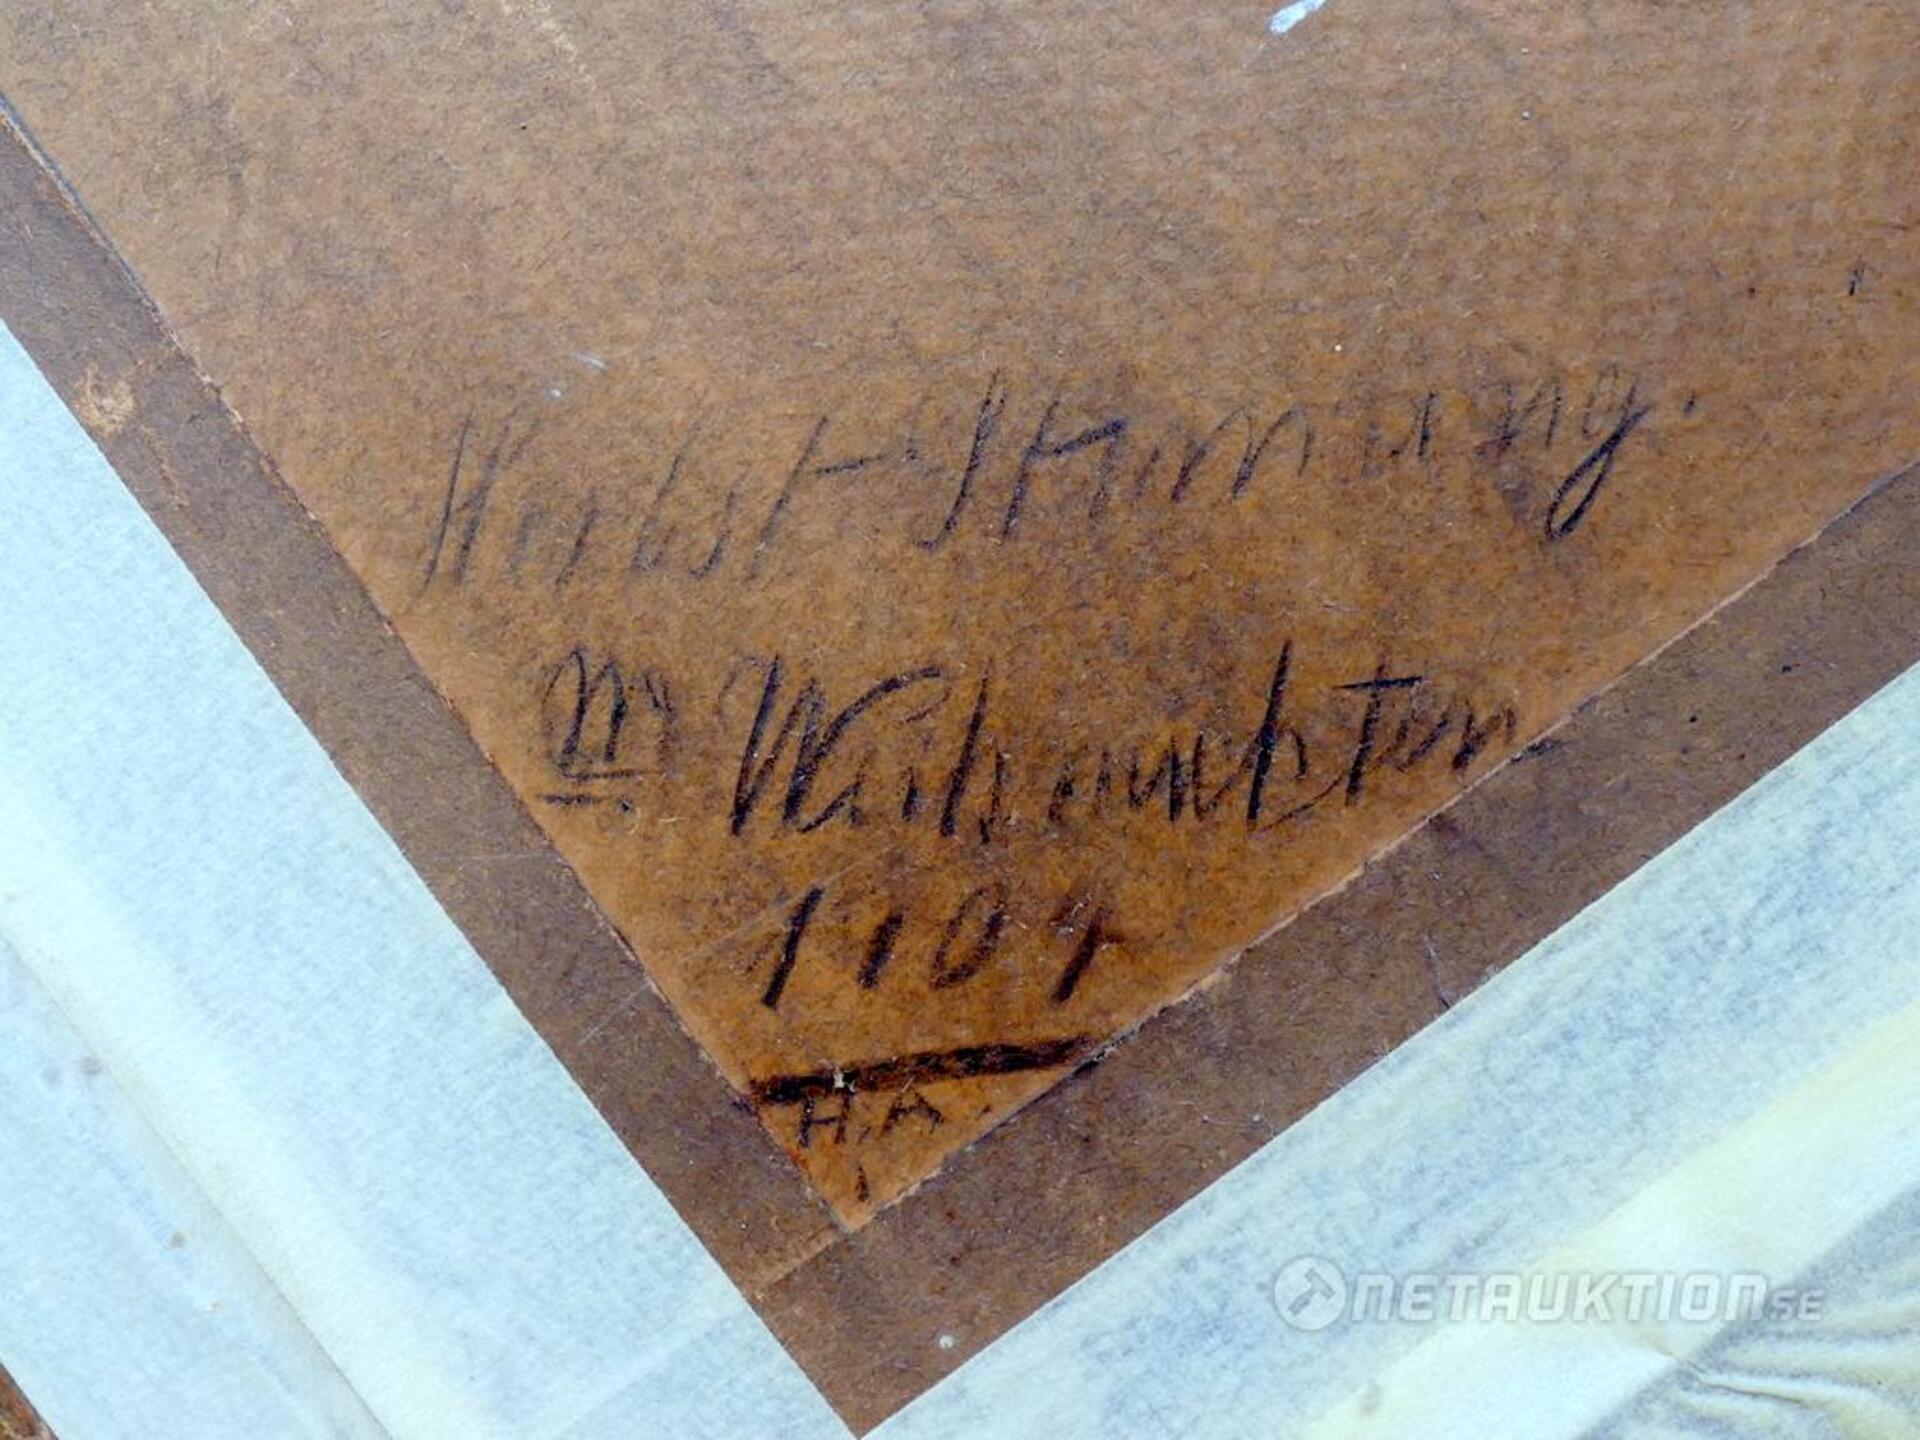 Herbst-Stimmung.
Weihnachten
H.A.
NETAUKTION.SE